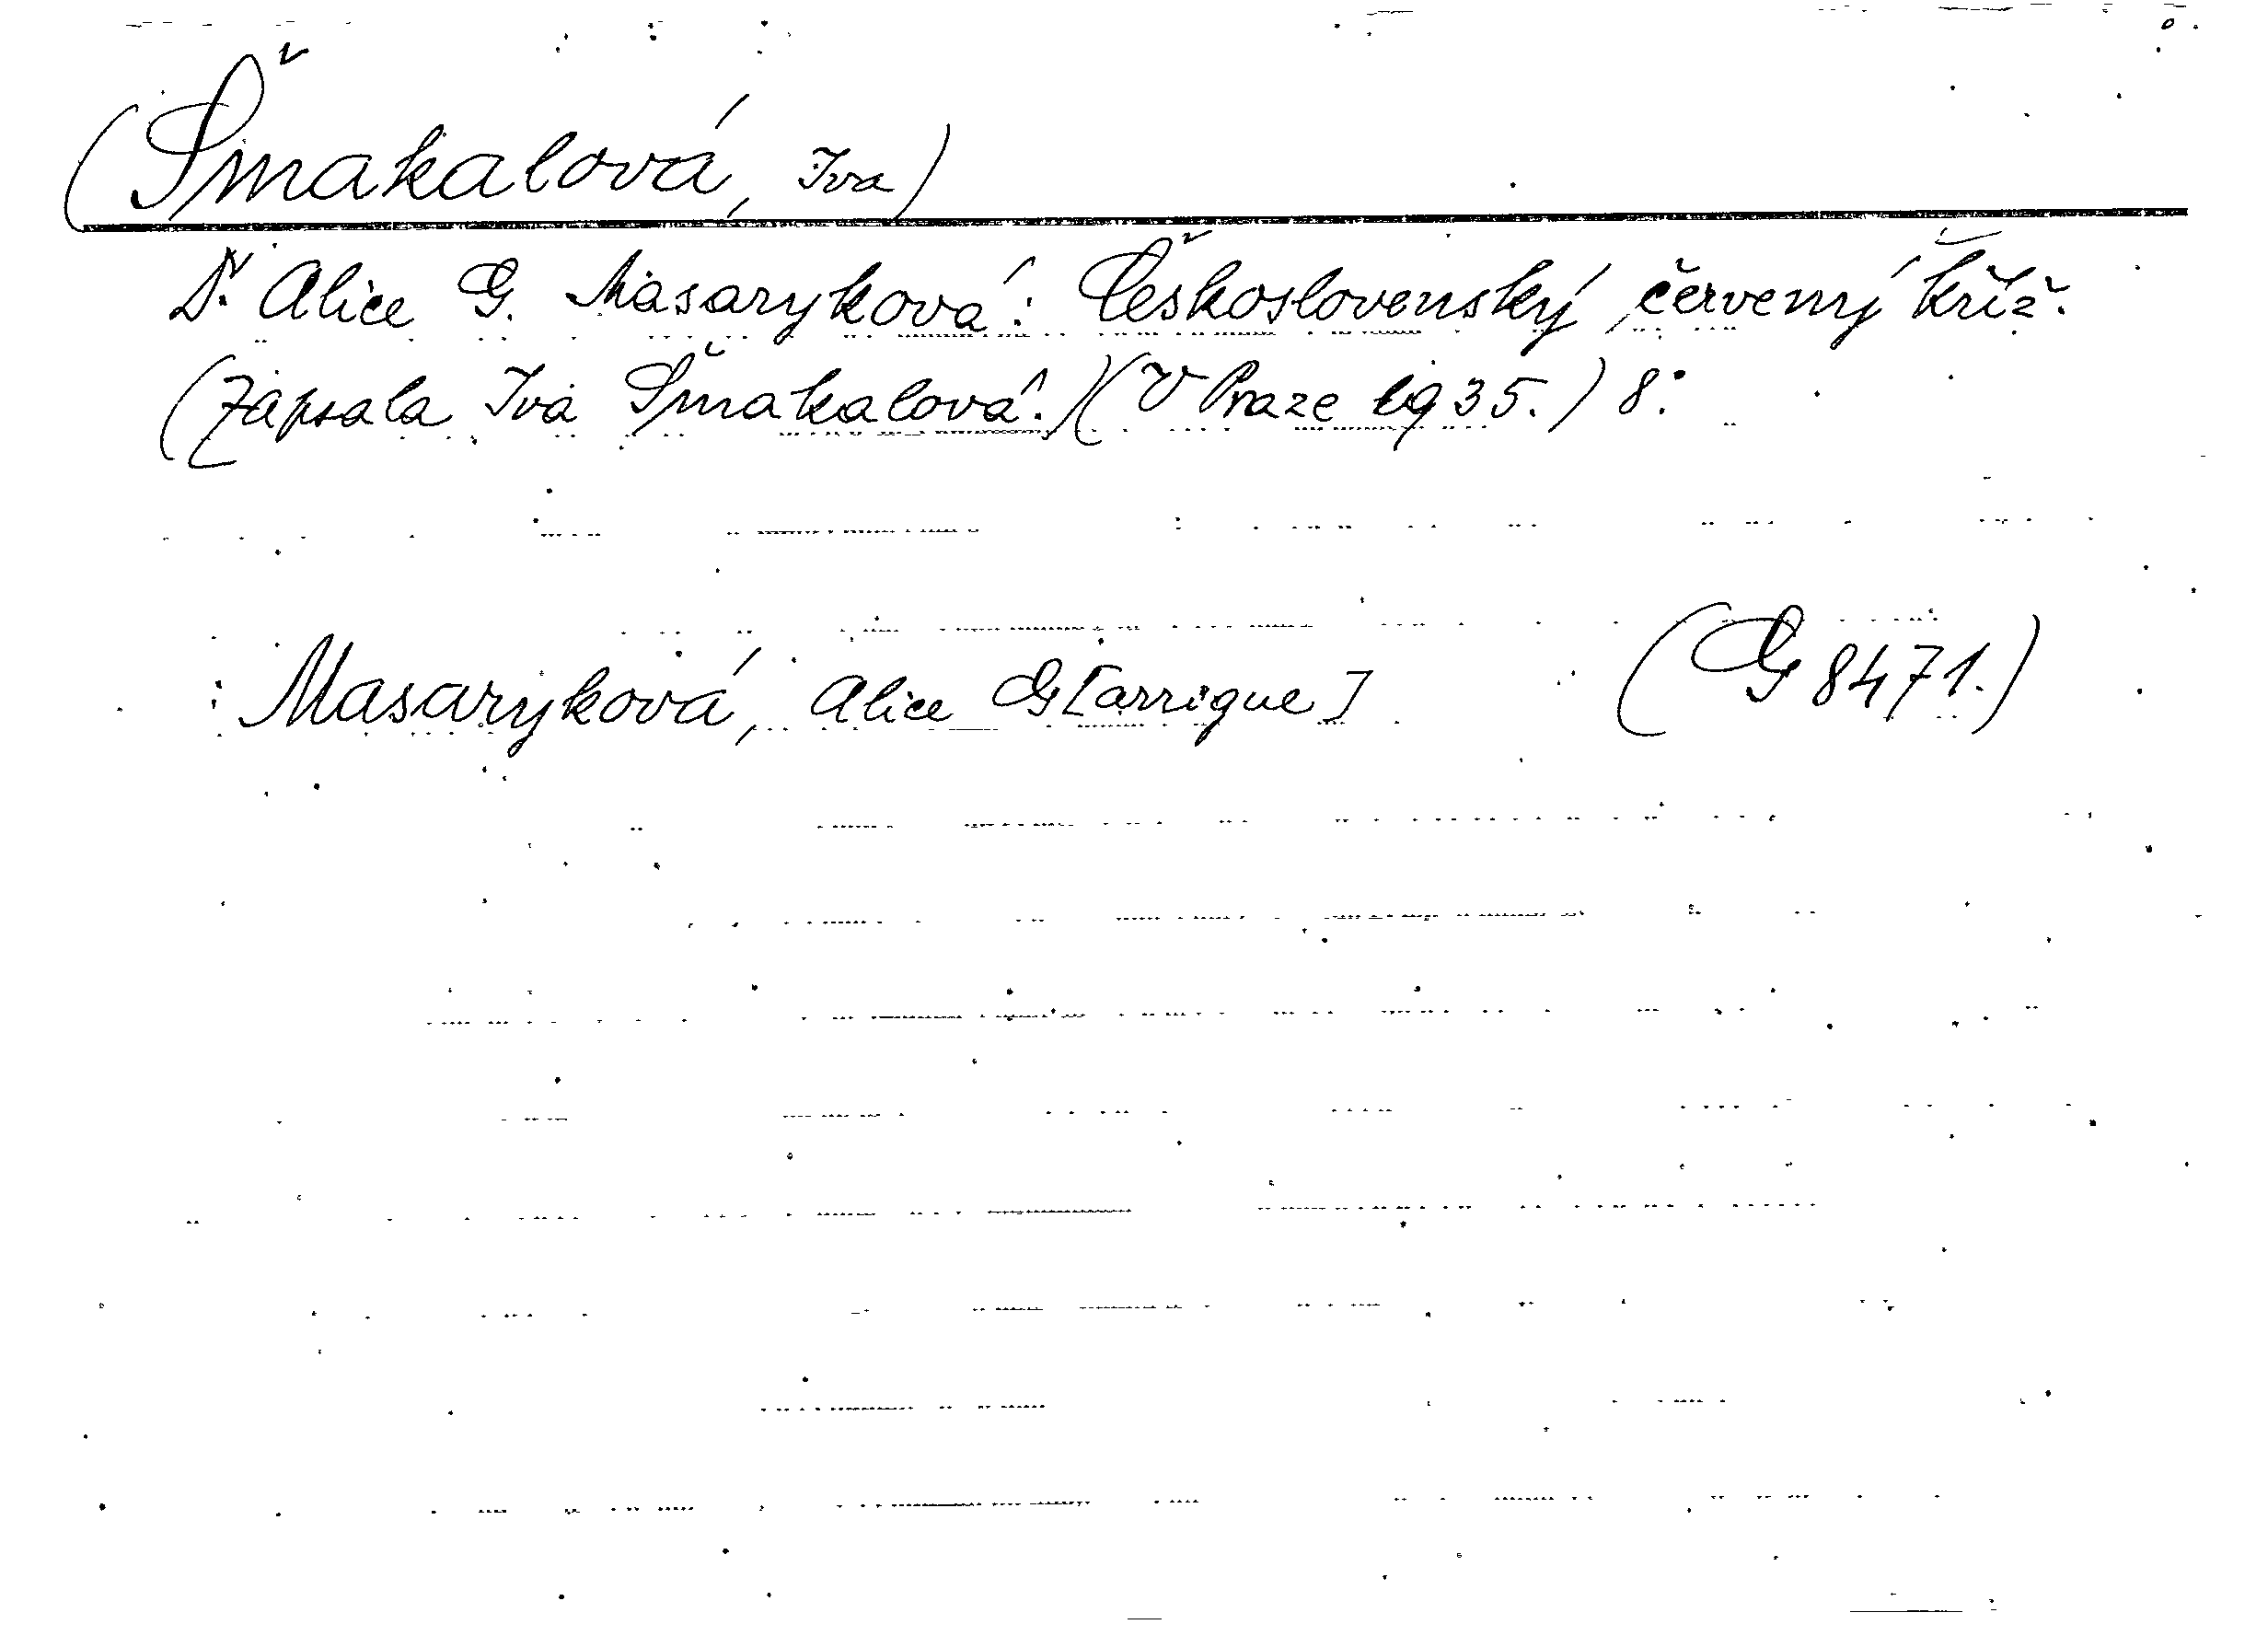 (Šmakalová, Iva)
Dr. Alice G. Masaryková: Československý červený kříž.
(Zapsala Iva Šmakalová.)(V Praze 1935.) 8°.
Masaryková, Alice G[arrigue] (G 8471.)